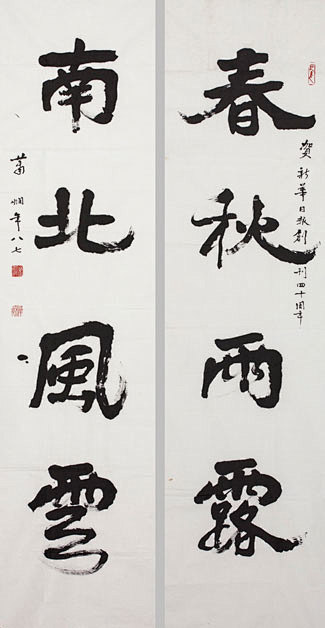 春秋雨露
賀新華日報創刊四十周年
南北風雲
蕭嫻年八七